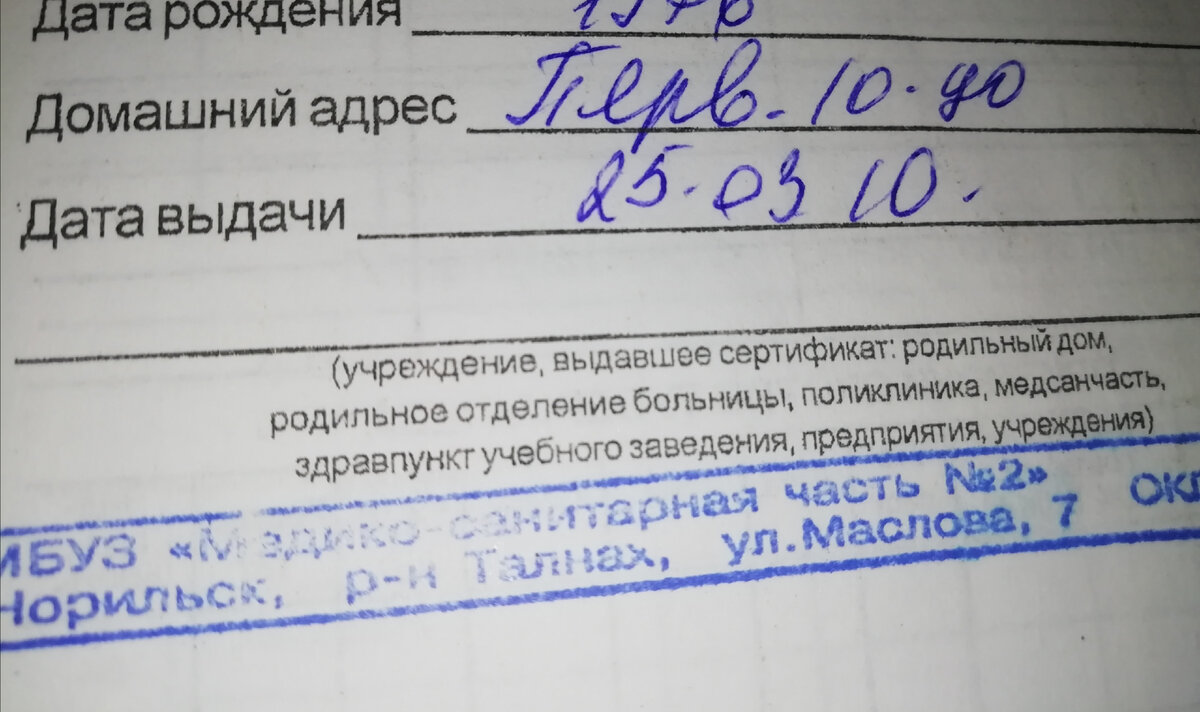 Дата рождения 1976
Домашний адрес Перв. 10-90
Дата выдачи 25.03 10.
(учреждение, выдавшее сертификат: родильный дом,
родильное отделение больницы, поликлиника, медсанчасть,
здравпункт учебного заведения, предприятия, учреждения)
МБУЗ «Медико-санитарная часть №2» ОКП
Норильск, р-н Талнах, ул.Маслова, 7